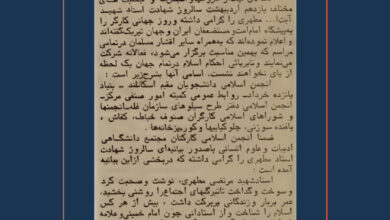 مختلف یازدهم اردیبهشت سالروز شهادت استاد شهید
آیت‌ا... مطهری را گرامی داشته و روز جهانی کارگر را
به‌پیشگاه امام‌امت و مستضعفان ایران و جهان تبریک‌گفته‌اند
و اعلام نموده‌اند که به‌همراه سایر اقشار مسلمان درتمامی
مراسم که بهمین مناسبت برگزار می‌شود، فعالانه شرکت
می‌نمایند و تابرپائی احکام اسلام درتمام جهان یک لحظه
از پای نخواهند نشست. اسامی آنها بشرح‌زیر است :
انجمن اسلامی دانشجویان مقیم آسکاتلند - بنیاد
پانزده خرداد - روابط عمومی کمیته امور صنفی مرکز -
انجمن اسلامی دفتر طرح سیلوهای سازمان غله - انجمنها
و شوراهای اسلامی کارگران صنوف خیاط، کفاش،
بافنده سوزنی، جلوکبابیها و کوره‌پزخانه‌ها.
ضمنا انجمن اسلامی کارکنان مجتمع دانشگاهی
ادبیات و علوم انسانی باصدور بیانیه‌ای سالروز شهادت
استاد مطهری را گرامی داشته که دربخشی ازاین بیانیه
آمده است :
استادشهید مرتضی مطهری، نوشت و صحبت کرد
و سوخت و گداخت تاتیرگیهای اجتماع را روشنی بخشید،
عمر پربار و زندگانی پربرکت داشت، بیش از هر کس
اسلام را شناخت و از استادانی چون امام خمینی و علامه